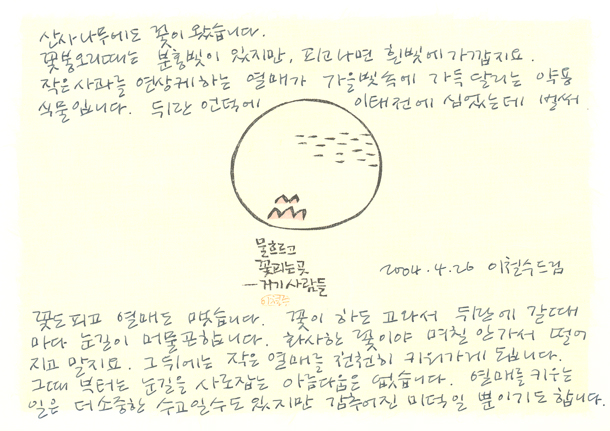 산사나무에도 꽃이 왔습니다.
꽃봉오리때는 분홍빛이 있지만, 피고나면 흰빛에 가깝지요.
작은 사과를 연상케하는 열매가 가을빛속에 가득 달리는 약용
식물입니다. 뒤란 언덕에 이태전에 심었는데 벌써
물흐르고
꽃피는곳
거기 사람들
2004.4.26 이철수드림
꽃도 피고 열매도 맺습니다. 꽃이 하도 고와서 뒤란에 갈때
마다 눈길이 머물곤합니다. 화사한 꽃이야 며칠 안가서 떨어
지고 말지요. 그뒤에는 작은 열매를 천천히 키워가게 됩니다.
그때 부터는 눈길을 사로잡는 아름다움은 없습니다. 열매를 키우는
일은 더 소중한 수고일수도 있지만 감추어진 미덕일 뿐이기도 합니다.